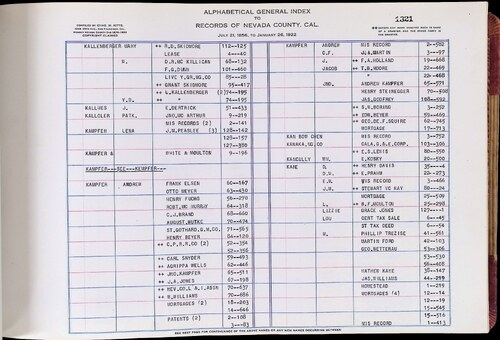 ALPHABETICAL GENERAL INDEX
TO
RECORDS OF NEVADA COUNTY, CAL.
JULY 21, 1856, TO JANUARY 26, 1922
1321
KALLENBERGER MARY ++ R.G. SKIDMORE 112—125
LEASE 4—40
G. D.R. MC KILLIGAN 68—132
F.G. DUNN 101—486
LIVE Y.GR.MG.CO 85—28
++ GRANT SKIDMORE 95—417
++ L. KALLENBERGER (2)74—195
Y.D. ++ " 74—195
KALLMES J. E. DERTWICH 51—433
KALLOLER PATK. JNO.DE ARTHUR 9—219
MIS RECORDS (2) 2—141
KAMPFER LENA J.W. PEARLEE (3) 128—142
128—157
127—388
KAMPFER & WHITE & MOULTON 9—196
KAMPFER---SEE---KEMPFER---
KAMPFER ANDREW FRANK ELSEN 60—167
OTTO MEYER 63—430
HENRY FUCHS 56—270
ROBT.MC MURRAY 64—318
C.J. BRAND 68—666
AUGUST BUTKE 70—474
ST.GOTHARD G.M.CO. 71—565
HENRY BEYER 84—120
++ C.P.R.R CO (2) 52—354
52—166
++ CARL SNYDER 59—493
++ AGRIPPA WELLS 62—446
++ JNO.KAMPFER 65—511
++ J.A. JONES 67—198
++ REV.CO.L & I.ASSN 70—637
++ B. WILLIAMS 70—656
MORTGAGES (2) 18—203
14—646
PATENTS (2) 2—108
3—83
KAMPFER ANDREW MIS RECORD 2—582
C.F. J.& A. MARTIN 3—97
J. ++ F.A. HOLLAND 19—668
JACOB ++ T.B. MOORE 22—469
++ " 22—468
JNO. ANDREW KAMPFER 65—511
HENRY STEINEGGER 70—508
JAS. GODFREY 198—592
++ S.H. PERKINS 3—252
++ CON. REYER 59—466
++ GEO.DE.F.SQUIRE 62—745
MORTGAGE 17—713
KAN BOW CHEN MIS RECORD 5—752
KANAKA,NG.CO GALA.G.& S.CORP. 103—306
++ E.S. LEWIS 80—550
KANGULLY WM. E. KOSKY 20—500
KANE D. ++ HENRY DAVIS 35—4
D.H. ++ E. PRAHM 22—273
E.M. MIS RECORD 3—466
J.M. ++ STEWART MC KAY 80—24
MORTGAGE 25—509
L. ++ B.F. MOULTON 25—298
LIZZIE GRACE JONES 127—1
LOU CERT TAX SALE 6—45
ST TAX DEED 6—54
M. PHILLIP TREZISE 41—581
MARTIN FORD 42—103
GEO.NETTERAU 53—366
53—530
58—408
MATHEW KANE 38—147
JAS.WILLIAMS 44—219
HOMESTEAD 1—219
MORTGAGES (4) 12—14
12—1
11—19
15—545
15—516
MIS RECORD 1—413